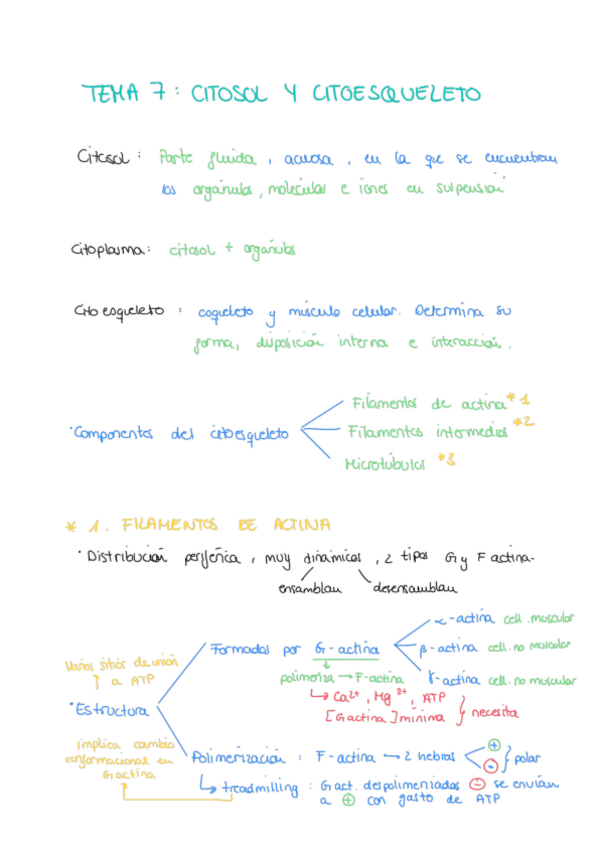 TEMA 7: CITOSOL Y CITOESQUELETO
Citosol: Parte fluida, acuosa, en la que se encuentran
los orgánulos, moléculas e iones en suspensión
Citoplasma: citosol + orgánulos
Citoesqueleto: esqueleto y músculo celular. Determina su
forma, disposición interna e interacción.
· Componentes del citoesqueleto
Filamentos de actina *1
Filamentos intermedios *2
Microtúbulos *3
* 1. FILAMENTOS DE ACTINA
· Distribución periférica, muy dinámicos, 2 tipos G y F actina.
ensamblan desensamblan
Formados por G-actina
α-actina cell. muscular
β-actina cell. no muscular
γ-actina cell. no muscular
Varios sitios de unión
↑ a ATP
polimeriza → F-actina
↳ Ca2+, Mg2+, ATP
[G actina] mínima } necesita
· Estructura
implica cambio
conformacional en
G actina
Polimerización: F-actina → 2 hebras
+
- } polar
↳ treadmilling: G act. despolimerizadas - se envían
a + con gasto de ATP